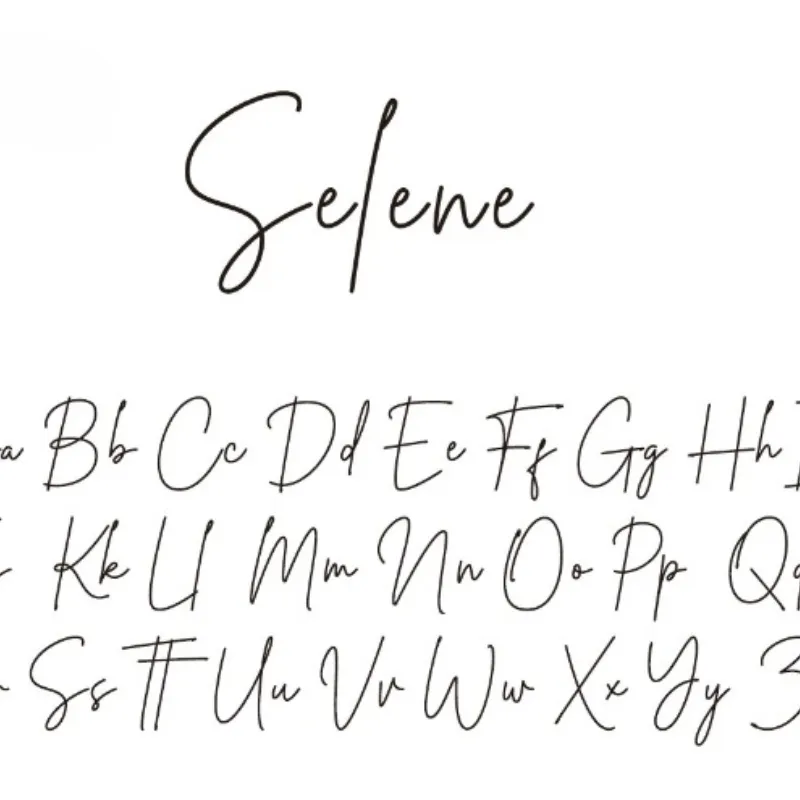 Selene
a Bb Cc Dd Ee Ff Gg Hh
Kk Ll Mm Nn Oo Pp Qq
Ss Tt Uu Vv Ww Xx Yy Z